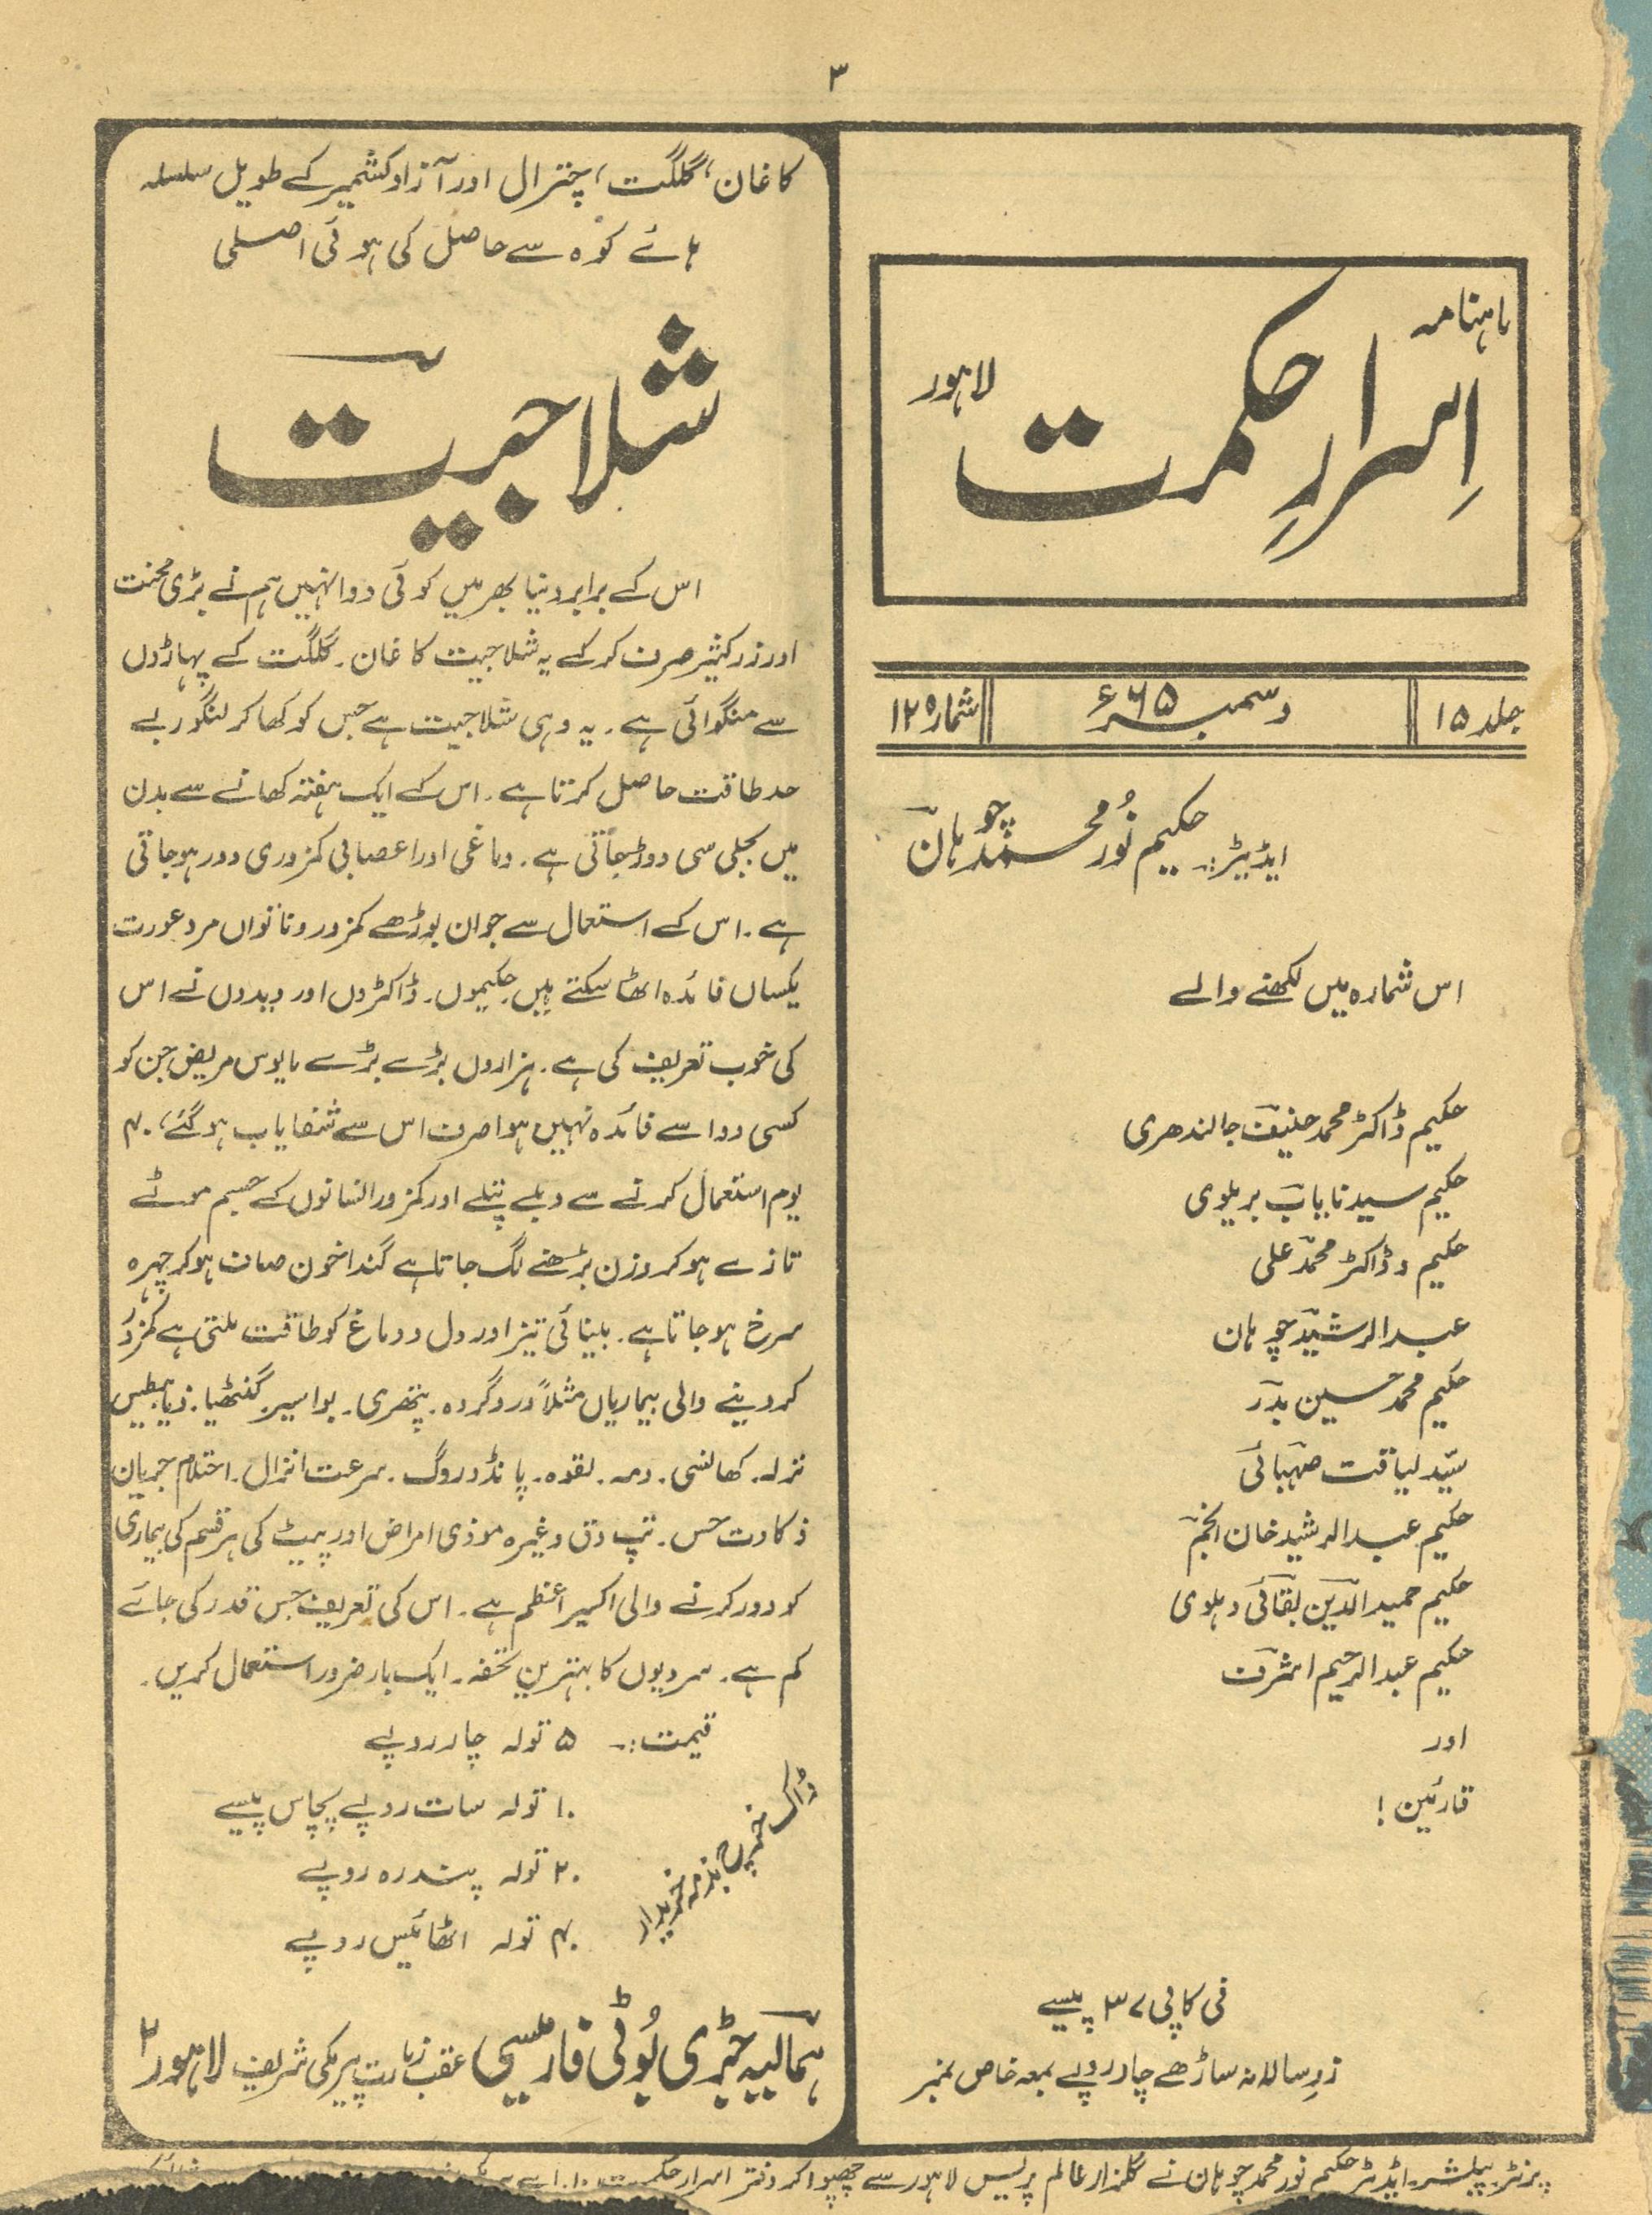 ۳
ماہنامہ
اسرارِ حکمت
لاہور
جلد ۱۵
دسمبر ۶۵ء
شمارہ ۱۲
ایڈیٹر:۔ حکیم نُور محمد چوہان
اس شمارہ میں لکھنے والے
حکیم ڈاکٹر محمد حنیف جالندھری
حکیم سید نایاب بریلوی
حکیم و ڈاکٹر محمد علی
عبدالرشید چوہان
حکیم محمد حسین بدر
سیّد لیاقت صہبائی
حکیم عبدالرشید خان انجم
حکیم حمید الدین بقائی دہلوی
حکیم عبدالرحیم اشرف
اور
قارئین!
فی کاپی ۳۷ پیسے
زرِ سالانہ ساڑھے چار روپے بمعہ خاص نمبر
کاغان، گلگت، چترال اور آزاد کشمیر کے طویل سلسلہ
ہائے کوہ سے حاصل کی ہوئی اصلی
شلاجیت
اس کے برابر دنیا بھر میں کوئی دوا نہیں ہم نے بڑی محنت
اور زر کثیر صرف کر کے یہ شلاجیت کاغان۔ گلگت کے پہاڑوں
سے منگوائی ہے۔ یہ وہی شلاجیت ہے جس کو کھا کر لنگور بے
حد طاقت حاصل کرتا ہے۔ اس کے ایک ہفتہ کھانے سے بدن
میں بجلی سی دوڑ جاتی ہے۔ دماغی اور اعصابی کمزوری دور ہو جاتی
ہے۔ اس کے استعمال سے جوان بوڑھے کمزور و ناتواں مرد عورت
یکساں فائدہ اٹھا سکتے ہیں۔ حکیموں۔ ڈاکٹروں اور ویدوں نے اس
کی خوب تعریف کی ہے۔ ہزاروں بڑے بڑے مایوس مریض جن کو
کسی دوا سے فائدہ نہیں ہوا صرف اس سے شفایاب ہو گئے، ۴۰
یوم استعمال کرنے سے دبلے پتلے اور کمزور انسانوں کے جسم موٹے
تازے ہو کر وزن بڑھنے لگ جاتا ہے گندا خون صاف ہو کر چہرہ
سرخ ہو جاتا ہے۔ بینائی تیز اور دل و دماغ کو طاقت ملتی ہے کمزور
کر دینے والی بیماریاں مثلاً درد گردہ۔ پتھری۔ بواسیر۔ گنٹھیا۔ ذیابیطیس
نزلہ۔ کھانسی۔ دمہ۔ لقوہ۔ پانڈو روگ۔ سرعت انزال۔ احتلام جریان
ذکاوت حس۔ تپ دق وغیرہ موذی امراض اور پیٹ کی ہر قسم کی بیماری
کو دور کرنے والی اکسیر اعظم ہے۔ اس کی تعریف جس قدر کی جائے
کم ہے۔ سردیوں کا بہترین تحفہ۔ ایک بار ضرور استعمال کریں۔
قیمت:۔ ۵ تولہ چار روپے
۱۰ تولہ سات روپے پچاس پیسے
۲۰ تولہ پندرہ روپے
۴۰ تولہ اٹھائیس روپے
ڈاک خرچ بذمہ خریدار
ہمالیہ جڑی بُوٹی فارمیسی عقب زیارت پیر مکی شریف لاہور ۲
پرنٹر پبلشر۔ ایڈیٹر حکیم نور محمد چوہان نے گلزار عالم پریس لاہور سے چھپوا کر دفتر اسرار حکمت